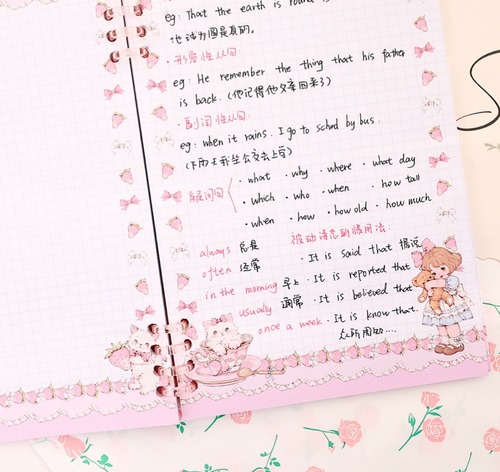 eg: That the earth is round is
·形容性从句:
eg: He remember the thing that his father
is back. (他记得他父亲回来了)
·副词性从句:
eg: when it rains. I go to school by bus.
(下雨土我坐公交去上学)
疑问词
·what ·why ·where ·what day
·which ·who ·when ·how tall
·when ·how ·how old ·how much
always 总是
often 经常
in the morning 早上
usually 通常
once a week
被动语态的惯用法:
·It is said that 据说
·It is reported that
·It is believed that
·It is know that.
众所周知....